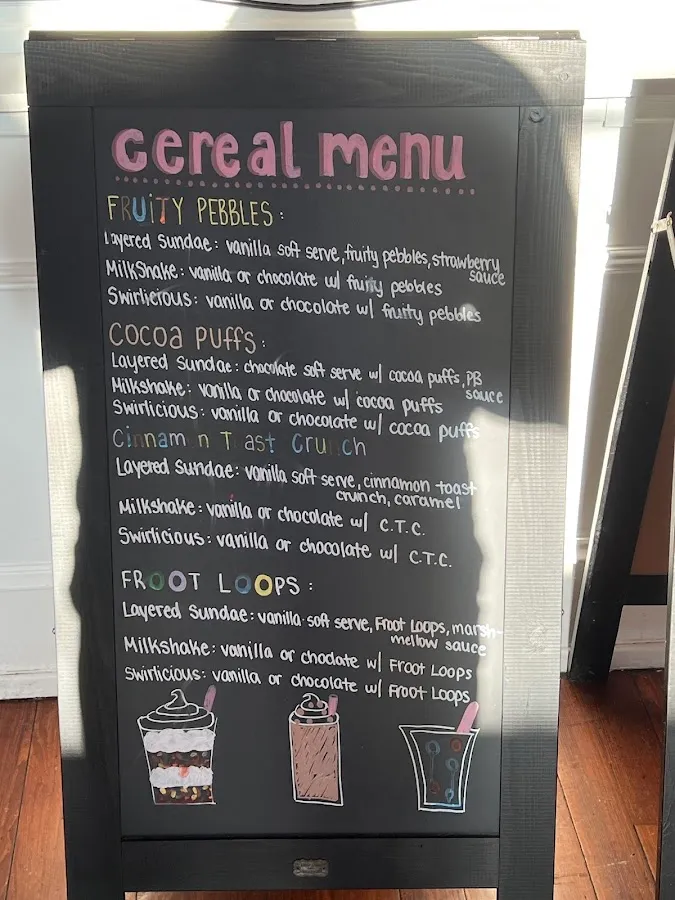 cereal menu
FRUITY PEBBLES:
Layered Sundae: vanilla soft serve, fruity pebbles, strawberry
sauce
MilkShake: vanilla or chocolate w/ fruity pebbles
Swirlicious: vanilla or chocolate w/ fruity pebbles
COCOA PUFFS:
Layered Sundae: chocolate soft serve w/ cocoa puffs, PB
sauce
Milkshake: vanilla or chocolate w/ cocoa puffs
Swirlicious: vanilla or chocolate w/ cocoa puffs
Cinnam n T ast Crunch
Layered Sundae: vanilla soft serve, cinnamon toast
crunch, caramel
Milkshake: vanilla or chocolate w/ C.T.C.
Swirlicious: vanilla or chocolate w/ C.T.C.
FROOT LOOPS:
Layered Sundae: vanilla soft serve, Froot Loops, marsh-
mellow sauce
Milkshake: vanilla or choclate w/ Froot Loops
Swirlicious: vanilla or chocolate w/ Froot Loops